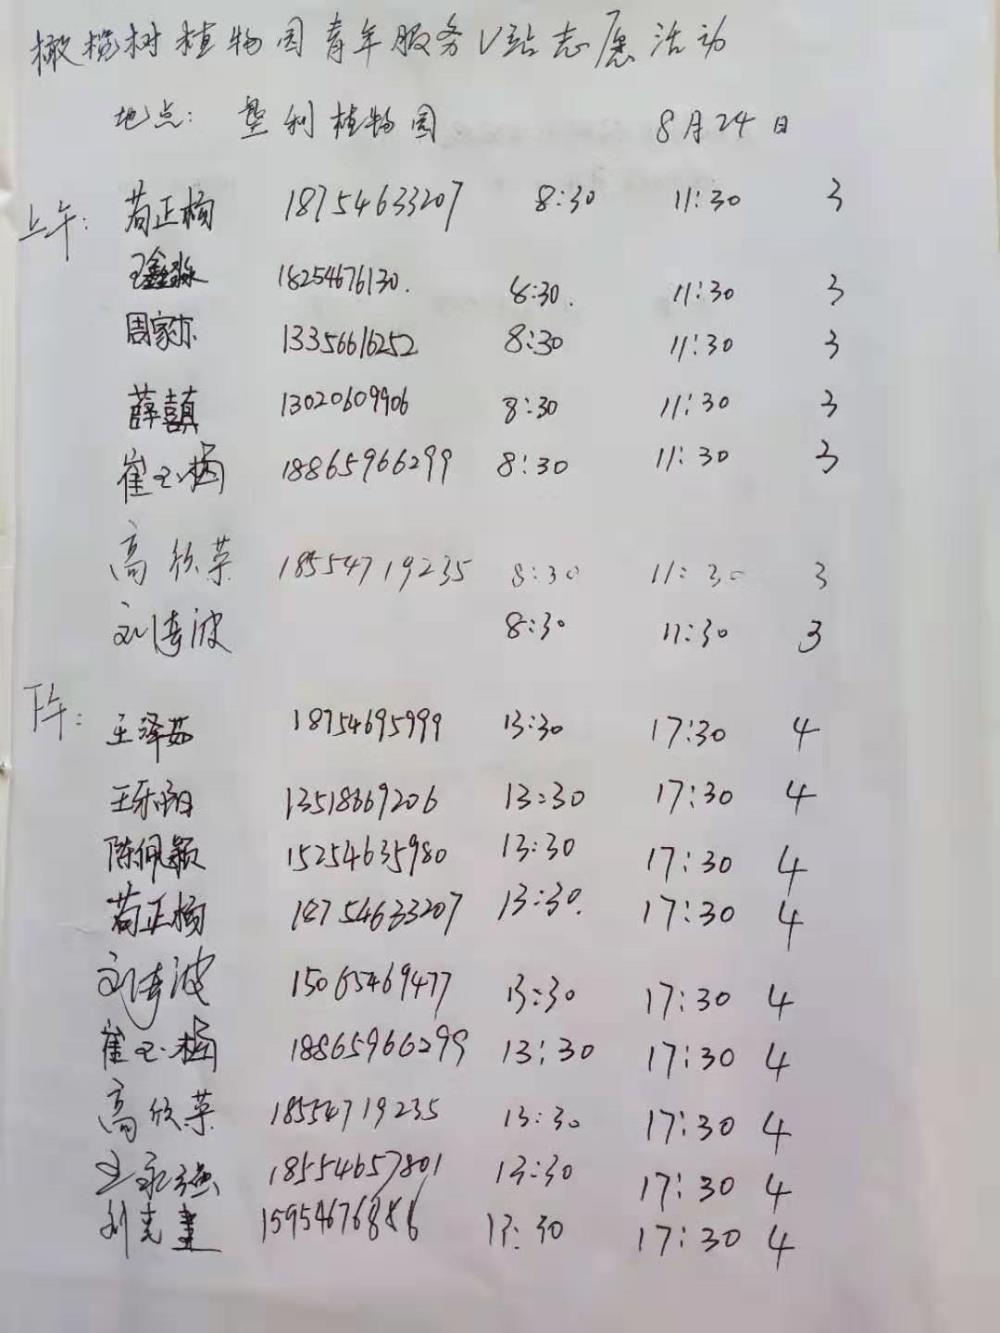 橄榄树植物园青年服务V站志愿活动
地点: 垦利植物园 8月24日
上午: 苟正杨 18754633207 8:30 11:30 3
王鑫淼 18254676130. 8:30. 11:30 3
周家亦 13356616252 8:30 11:30 3
薛囍 13020609906 8:30 11:30 3
崔玉梅 18865966299 8:30 11:30 3
高欣荣 18554719235 8:30 11:30 3
刘涛波 8:30 11:30 3
下午: 王泽茹 18754695999 13:30 17:30 4
王乐阳 13518669206 13:30 17:30 4
陈佩颖 15254635980 13:30 17:30 4
苟正杨 18754633207 13:30. 17:30 4
刘涛波 15065469477 13:30 17:30 4
崔玉梅 18865966299 13:30 17:30 4
高欣荣 18554719235 13:30 17:30 4
王永强 18554657801 13:30 17:30 4
刘克奎 15954676886 13:30 17:30 4